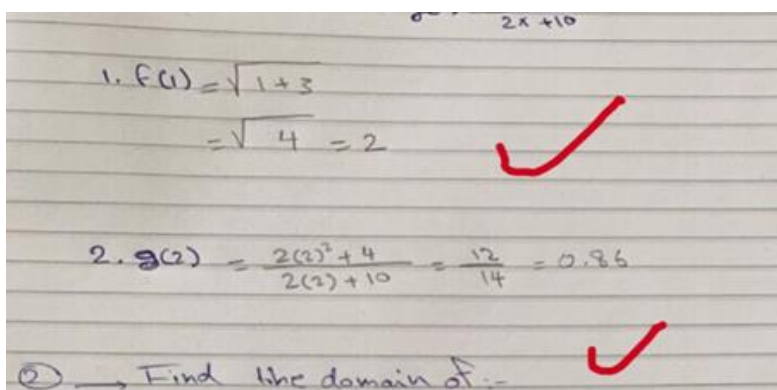 2x +10
1. f(1) = √1+3
= √4 = 2
2. g(2) = 2(2)²+4 / 2(2)+10 = 12/14 = 0.86
② → Find the domain of :-